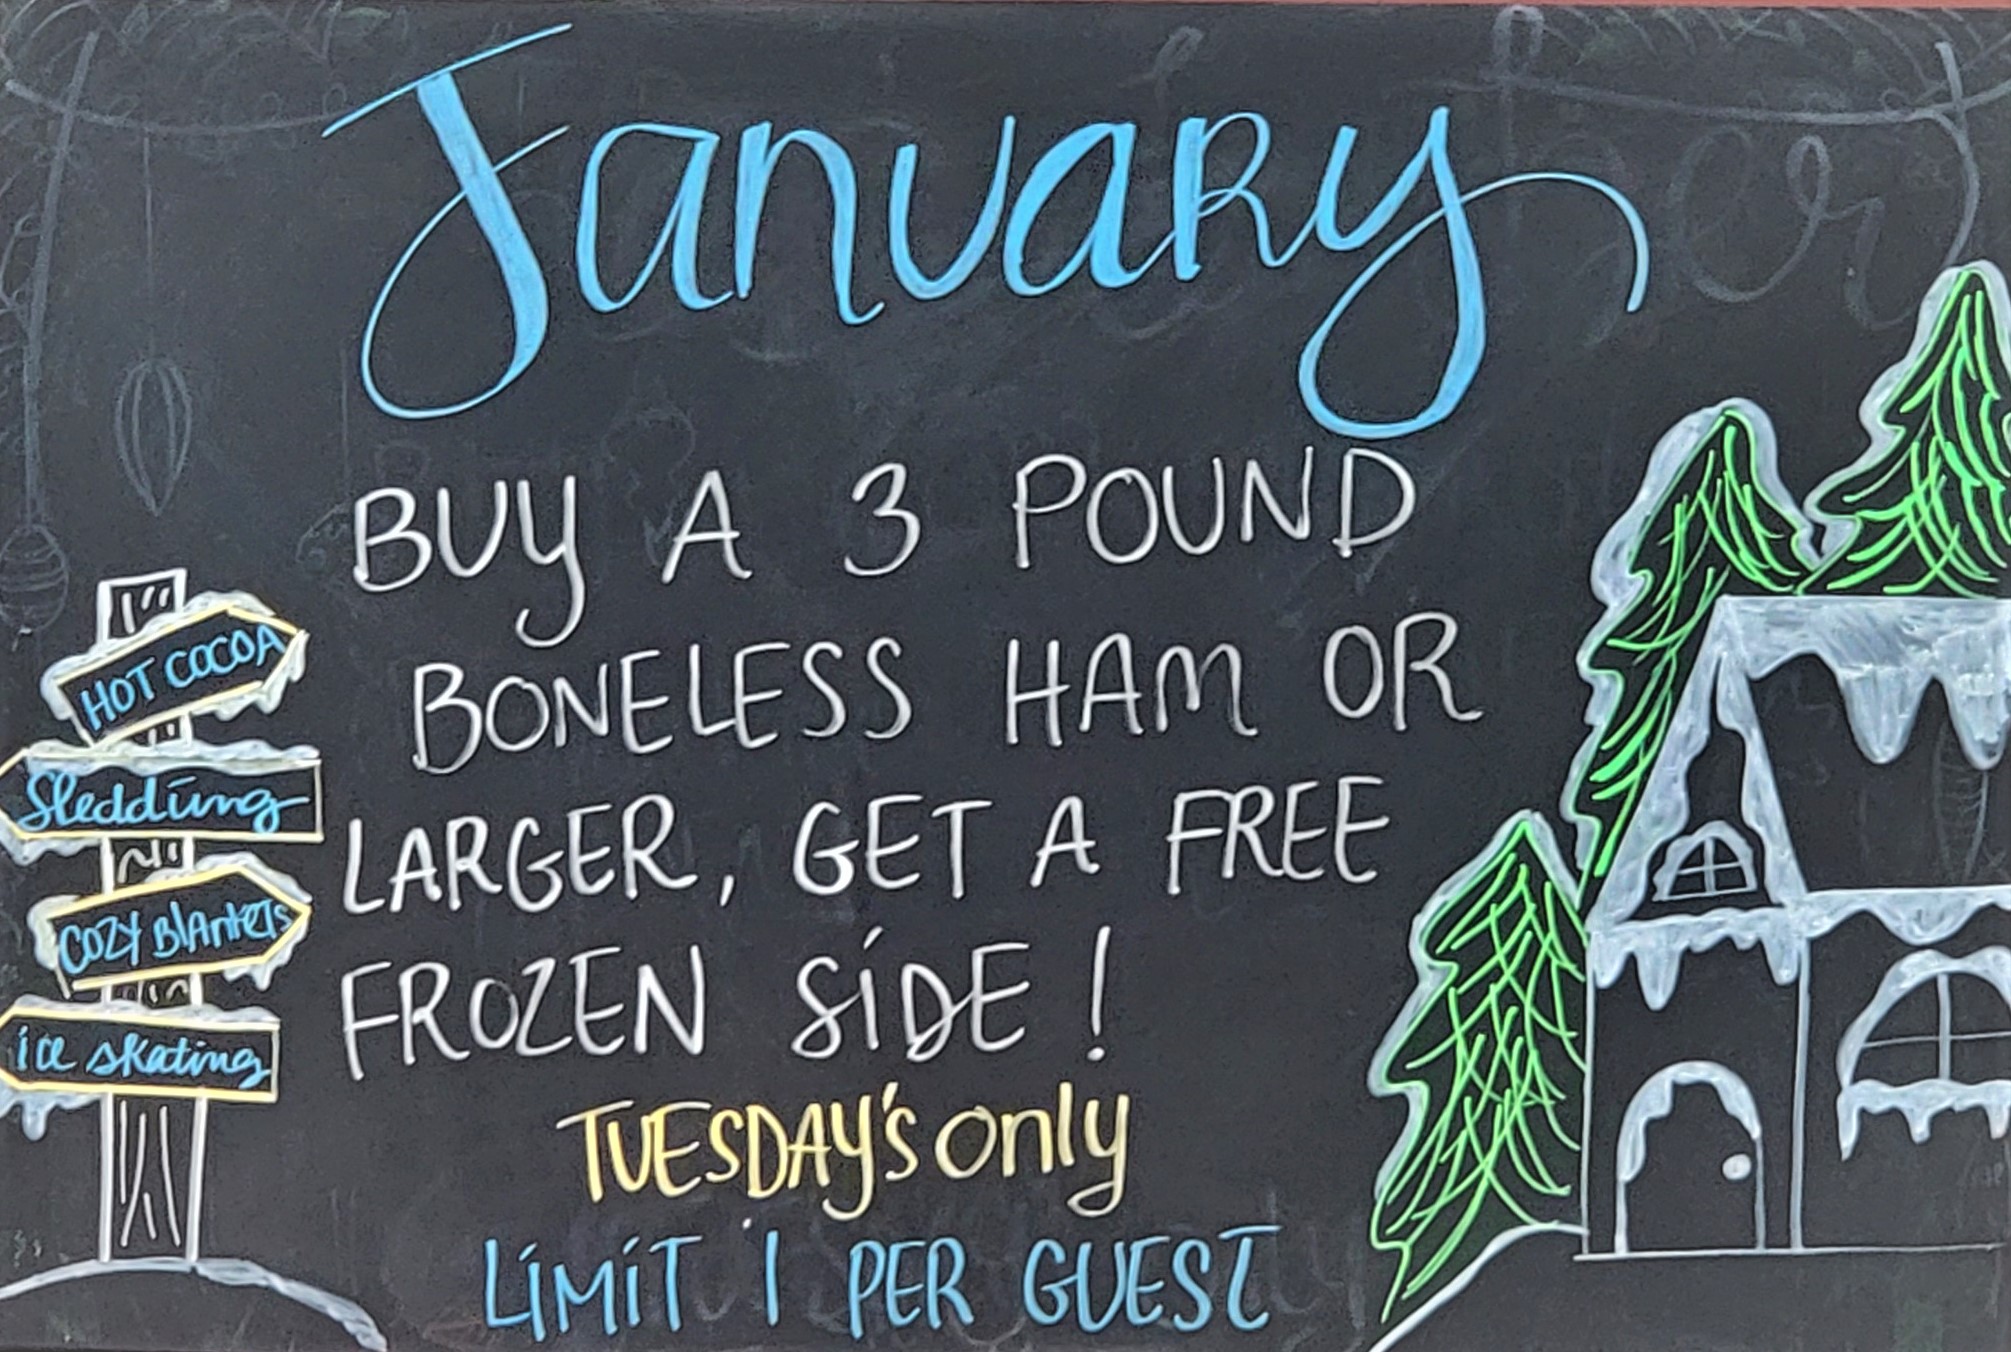 January
BUY A 3 POUND
BONELESS HAM OR
LARGER, GET A FREE
FROZEN SIDE!
TUESDAY'S only
LIMIT 1 PER GUEST
HOT COCOA
Sledding
COZY BlAnkeTs
ice skating